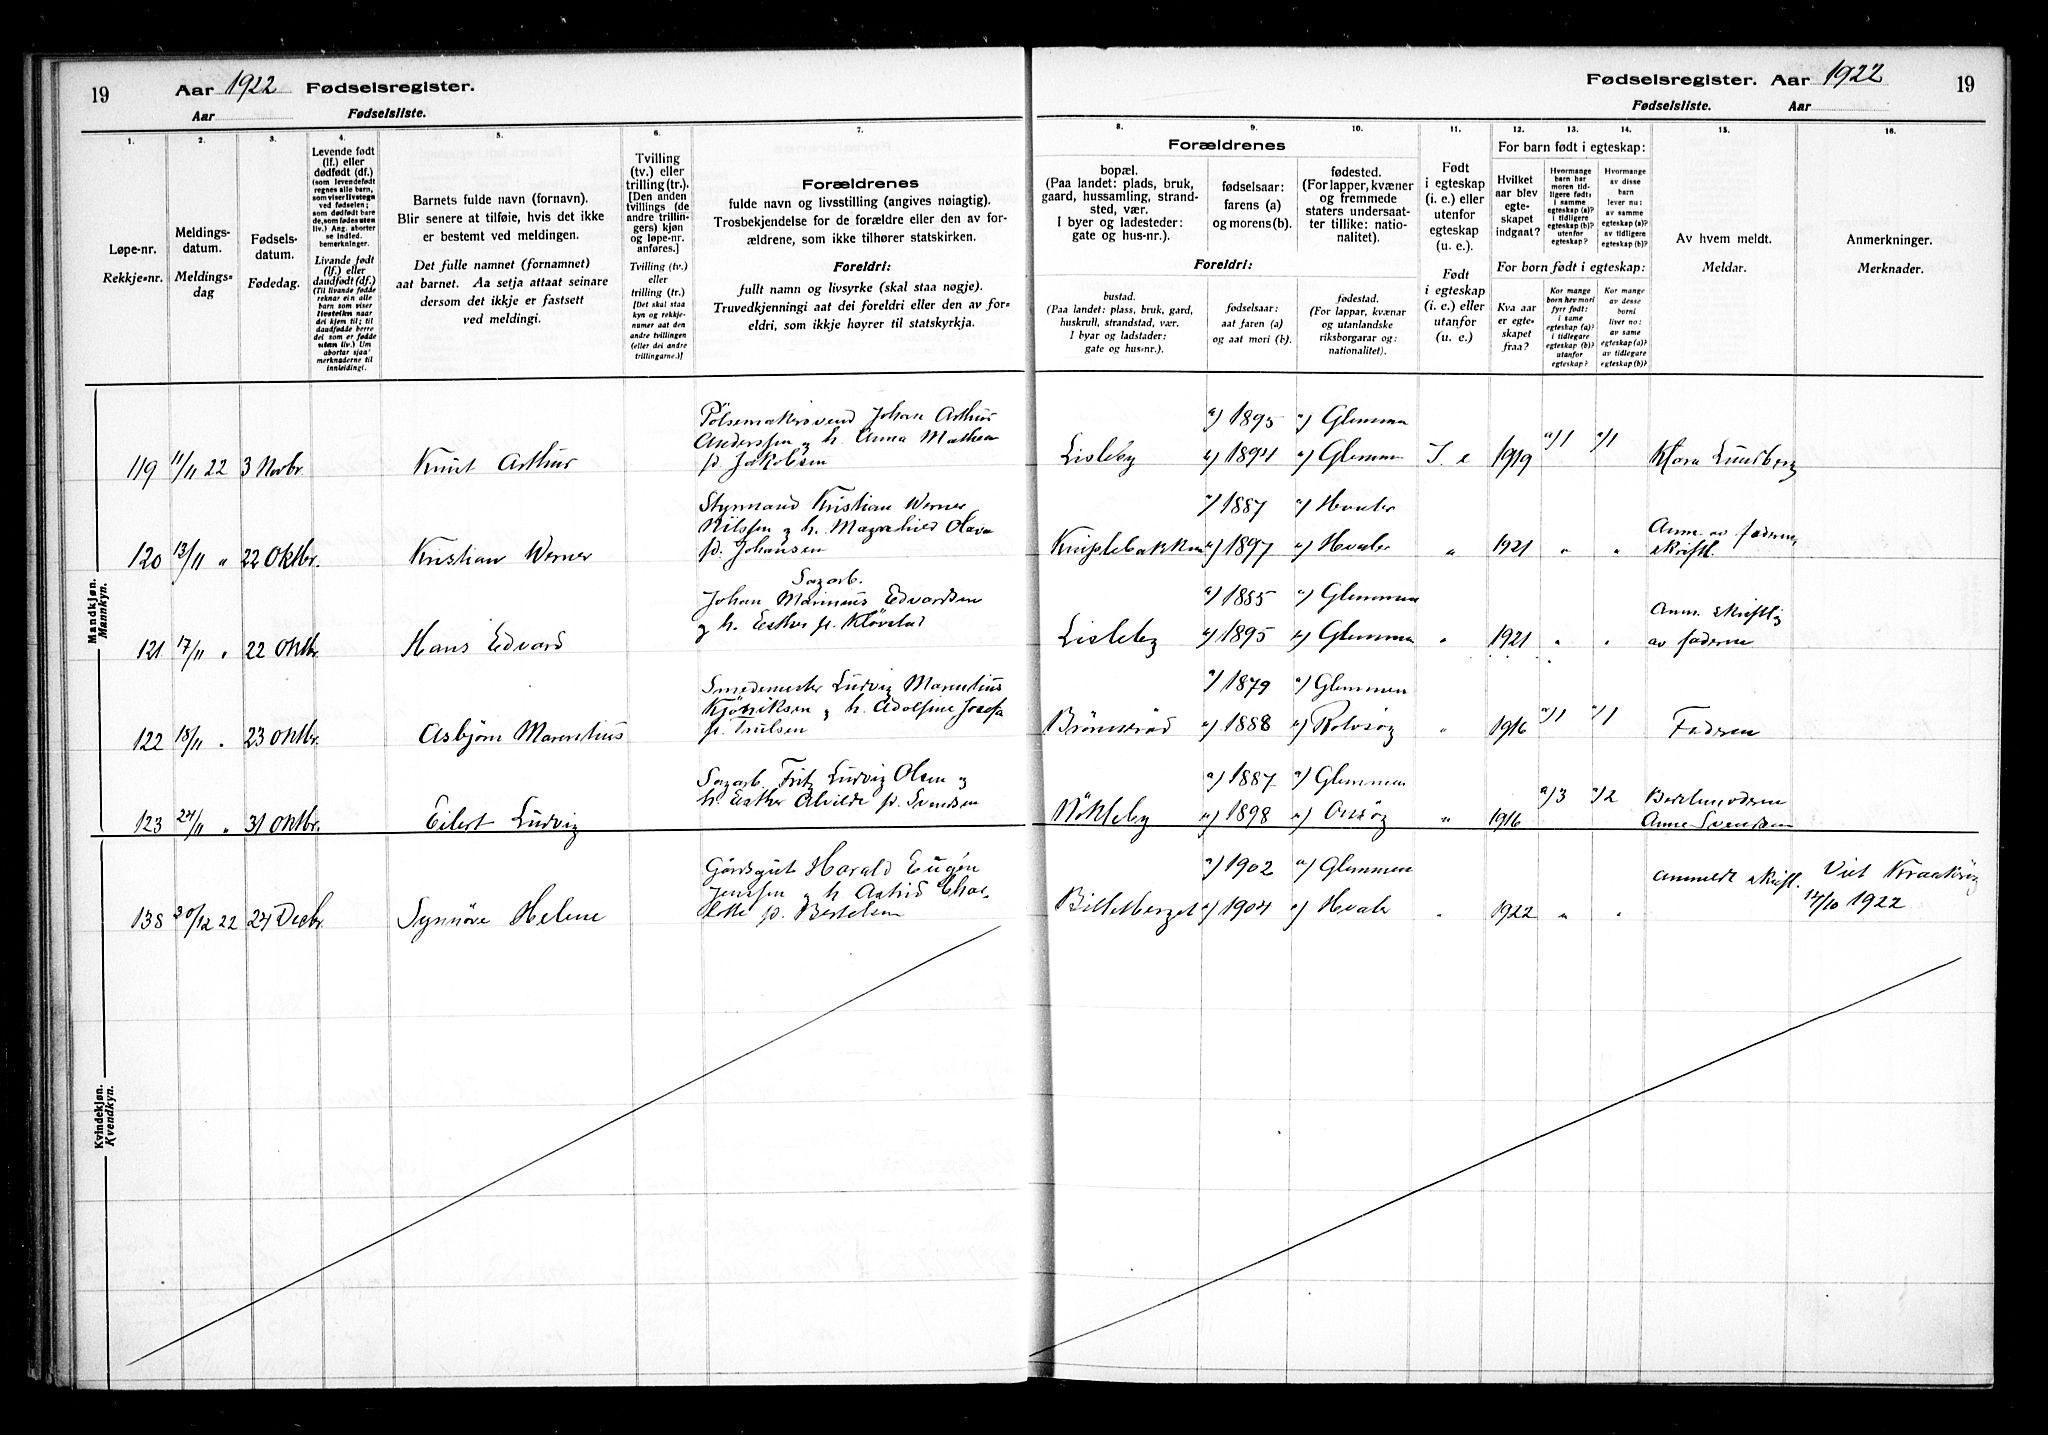 19
Aar 1922 Fødselsregister.
Aar Fødselsliste.
1.
Løpe-nr.
Rekkje-nr.
2.
Meldings-
datum.
Meldings-
dag
3.
Fødsels-
datum.
Fødedag.
4.
Levende født
(lf.) eller
dødfødt (df.)
(som levendefødt
regnes alle barn,
som viser livstegn
ved fødselen;
som dødfødt bare
de, som fødes uten
liv.) Ang. aborter
se indled.
bemerkninger.
Livande født
(lf.) eller
daudfødt (df.)
(Til livande fødde
reknar ein alle
barn som viser
livsteikn naar
dei kjem til; til
daudfødde berre
dei som er fødde
utan liv.) Um
abortar sjaa
merknaderne til
innleidingi.
5.
Barnets fulde navn (fornavn).
Blir senere at tilføie, hvis det ikke
er bestemt ved meldingen.
Det fulle namnet (fornamnet)
aat barnet. Aa setja attaat seinare
dersom det ikkje er fastsett
ved meldingi.
6.
Tvilling
(tv.) eller
trilling (tr.).
[Den anden
tvillings (de
andre trillin-
gers) kjøn
og løpe-nr.
anføres.]
Tvilling (tv.)
eller
trilling (tr.)
[Det skal staa
kyn og rekkje-
numer aat den
andre tvillingen
(eller dei andre
trillingarne.)]
7.
Forældrenes
fulde navn og livsstilling (angives nøiagtig).
Trosbekjendelse for de forældre eller den av for-
ældrene, som ikke tilhører statskirken.
Foreldri:
fullt namn og livsyrke (skal staa nøgje).
Truvedkjenningi aat dei foreldri eller den av for-
eldri, som ikkje høyrer til statskyrkja.
Mandkjøn.
Mannkyn.
119 11/11 22 3 Novbr. Knut Arthur
Pølsemakersvend Johan Arthur
Anderssen og h. Anna Mathea
f. Jakobsen
120 13/11 " 22 Oktbr. Kristian Werner
Styrmand Kristian Werner
Nilssen og h. Magnhild Olava
f. Johansen
121 17/11 " 22 Oktbr. Hans Edvard
Sagarb.
Johan Marinius Edvardsen
og h. Esther f. Kløvstad
122 18/11 " 23 Oktbr. Asbjørn Marentius
Smedemester Ludvig Marentius
og h. Adolfine Josefa
f. Trulsen
123 24/11 " 31 Oktbr. Eilert Ludvig
Sagarb. Fritz Ludvig Olsen og
h. Esther Alvilde f. Svendsen
Kvindekjøn.
Kvendkyn.
138 30/12 22 24 Decbr. Synnøve Helene
Gårdsgut Harald Eugén
Jenssen og h Astrid Char-
lotte f. Bertelsen
Fødselsregister. Aar 1922
19
Fødselsliste. Aar
Forældrenes
8.
bopæl.
(Paa landet: plads, bruk,
gaard, hussamling, strand-
sted, vær.
I byer og ladesteder:
gate og hus-nr.).
9.
fødselsaar:
farens (a)
og morens (b).
10.
fødested.
(For lapper, kvæner
og fremmede
staters undersaat-
ter tillike: natio-
nalitet).
Foreldri:
bustad.
(Paa landet: plass, bruk, gard,
huskrull, strandstad, vær.
I byar og ladstader:
gate og hus-nr.).
fødselsaar:
aat faren (a)
og aat mori (b).
fødestad.
(For lappar, kvænar
og utanlandske
riksborgarar og:
nationalitet).
11.
Født
i egteskap
(i. e.) eller
utenfor
egteskap
(u. e.).
Født
i egteskap
(i. e.) eller
utanfor
(u. e.)
For barn født i egteskap:
12.
Hvilket
aar blev
egte-
skapet
indgaat?
13.
Hvormange
barn har
moren tid-
ligere født:
i samme
egteskap (a)?
i tidligere
egteskap (b)?
utenfor
egteskap?
14.
Hvormange
av disse
barn
lever nu:
av samme
egteskap (a)?
av tidligere
egteskap (b)?
For born født i egteskap:
Kva aar
er egte-
skapet
fraa?
Kor mange
born hev mori
fyrr født:
i same
egteskap (a)?
i tidlegare
egteskap (b)?
utanfor
egteskap?
Kor mange
av desse
borni
liver no:
av same
egteskap (a)?
av tidlegare
egteskap (b)?
15.
Av hvem meldt.
Meldar.
16.
Anmerkninger.
Merknader.
a) 1895 a) Glemmen
Lisleby b) 1894 b) Glemmen I. e 1919 a/1 a/1 Klara Lundberg
a) 1887 a) Hvaler
b) 1897 b) Hvaler " 1921 " " Anm. av faderen
skriftl.
a) 1885 a) Glemmen
Lisleby b) 1895 b) Glemmen " 1921 " " Anm. skriftlig
av faderen
a) 1879 a) Glemmen
b) 1888 b) Rolvsøy " 1916 a/1 a/1 Faderen
a) 1887 a) Glemmen
Nökleby b) 1898 b) Onsøy " 1916 a/3 a/2
Anna Svendsen
a) 1902 a) Glemmen
b) 1904 b) Hvaler " 1922 " " anmeldt skriftl.
Viet Kraakerøy
14/10 1922